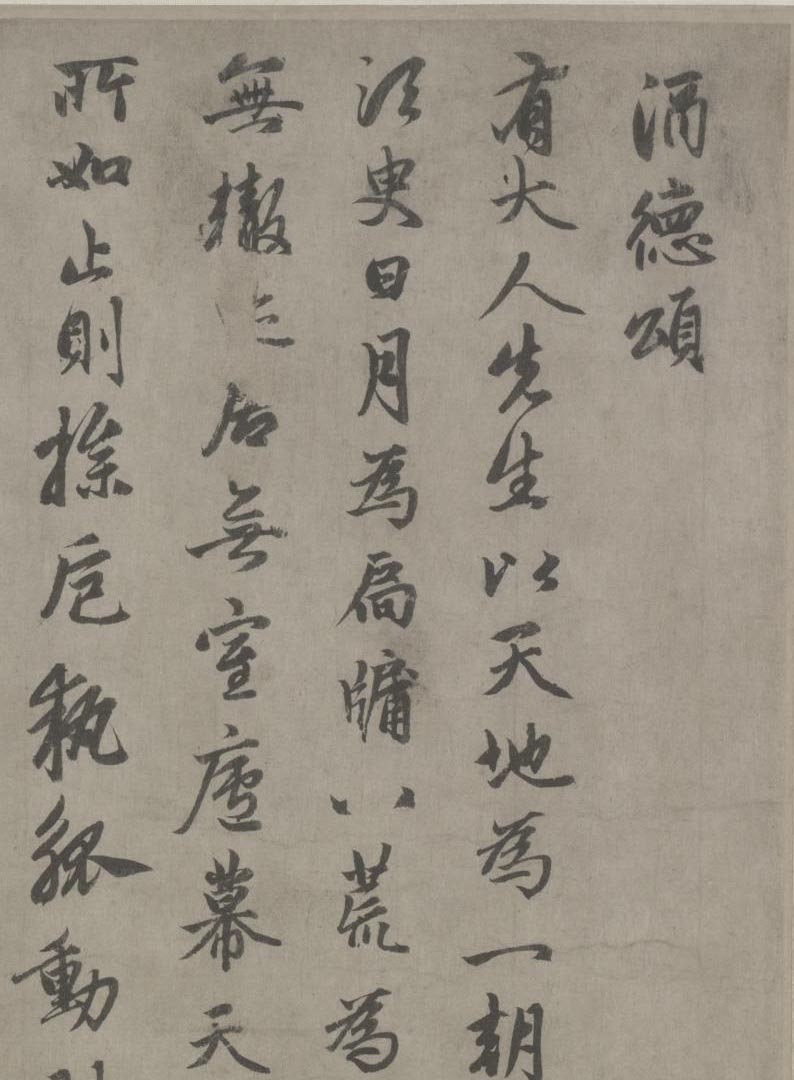 酒德頌
有大人先生以天地為一朝
須臾日月為扃牖八荒為
無轍居無室廬幕天
所如止則操卮執觚動